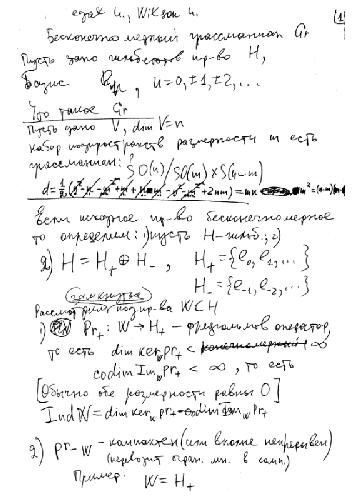 [1]
Бесконечномерный грассманиан Gr
Пусть дано гильбертово пр-во H,
Базис n=0, ±1, ±2, ...
Что такое Gr
Пусть дано V, dim V=n
Набор подпространств размерности m есть
грассманиан: SO(n)/SO(m)×SO(n-m)
Если исходное пр-во бесконечномерное
то определим: 1) пусть H-гильб.; 2)
2) H = H₊ ⊕ H₋, H₊ = {e₀, e₁, ...}
H₋ = {e₋₁, e₋₂, ...}
замкнутые
Рассмотрим подпр-ва W⊂H
1) pr₊: W → H₊ - фредгольмов оператор,
то есть dim ker_W pr₊ < ∞
codim Im_W pr₊ < ∞, то есть
[Обычно обе размерности равны 0]
Ind W = dim ker_W pr₊ - codim Im_W pr₊
2) pr₋W - компактен (или вполне непрерывен)
(переводит огран. мн. в комп.)
Пример: W = H₊